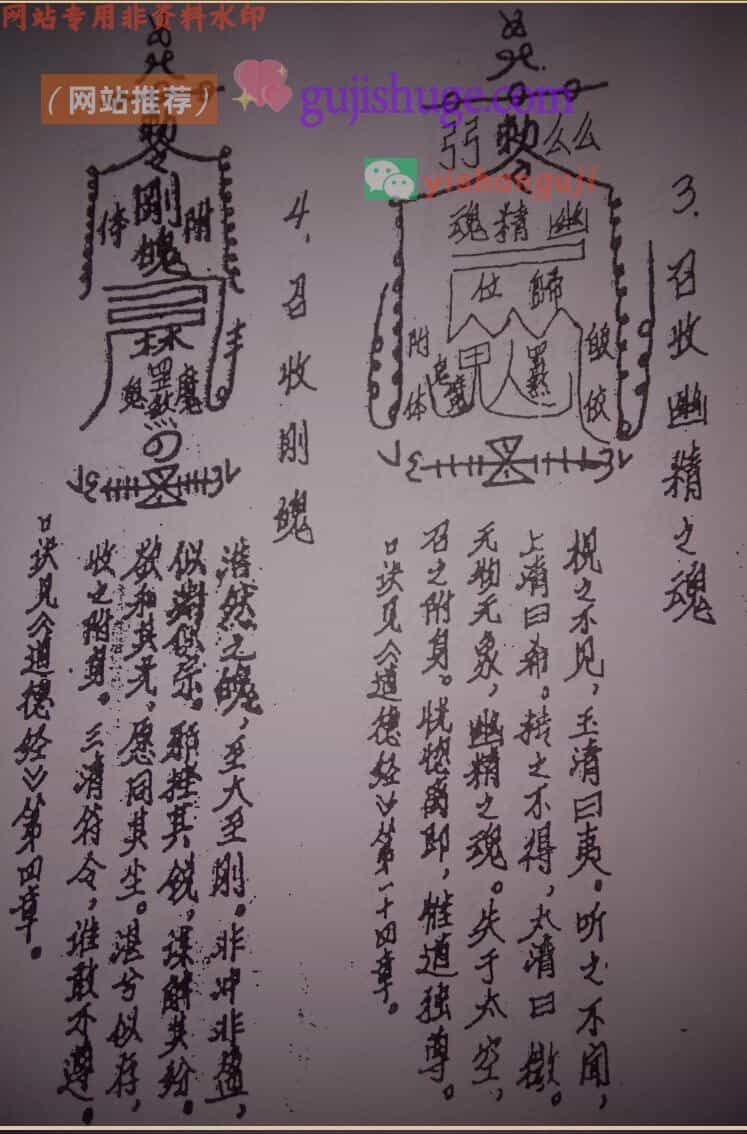 网站专用非资料水印
(网站推荐)
gujishuge.com
yishonguji
3.召收幽精之魂
勅令
幽精魂
歸位
附体
視之不見,玉清曰夷。听之不闻,
上清曰希。抟之不得,太清曰微。
无物无象,幽精之魂。失于太空,
召之附身。恍惚
口诀见《道德经》第一十四章。
4.召收刚魄
勅令
刚魄
附体
浩然之魄,至大至刚。非冲非盈,
似渊似宗。那挫其锐,谋解其纷。
欲和其光,愿同其尘。湛兮似存,
收之附身。三清符令,谁敢不遵。
口诀见《道德经》第四章。